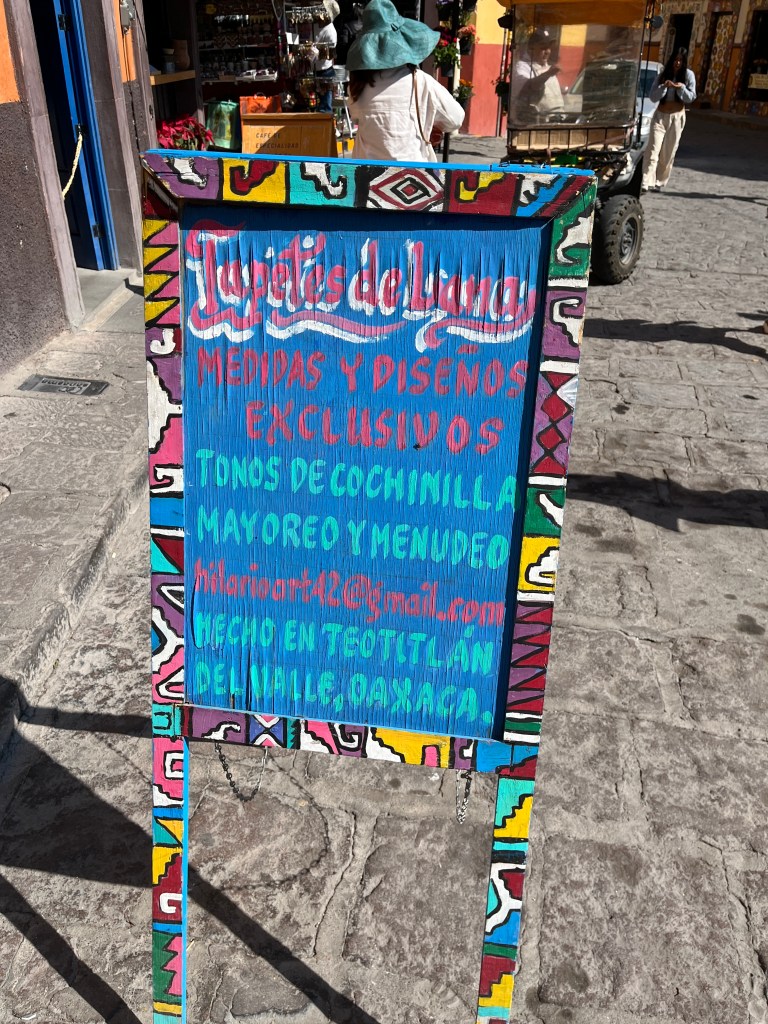 CAFÉ DE
ESPECIALIDAD
Tapetes de Lana
MEDIDAS Y DISEÑOS
EXCLUSIVOS
TONOS DE COCHINILLA
MAYOREO Y MENUDEO
hilarioart42@gmail.com
HECHO EN TEOTITLÁN
DEL VALLE, OAXACA.